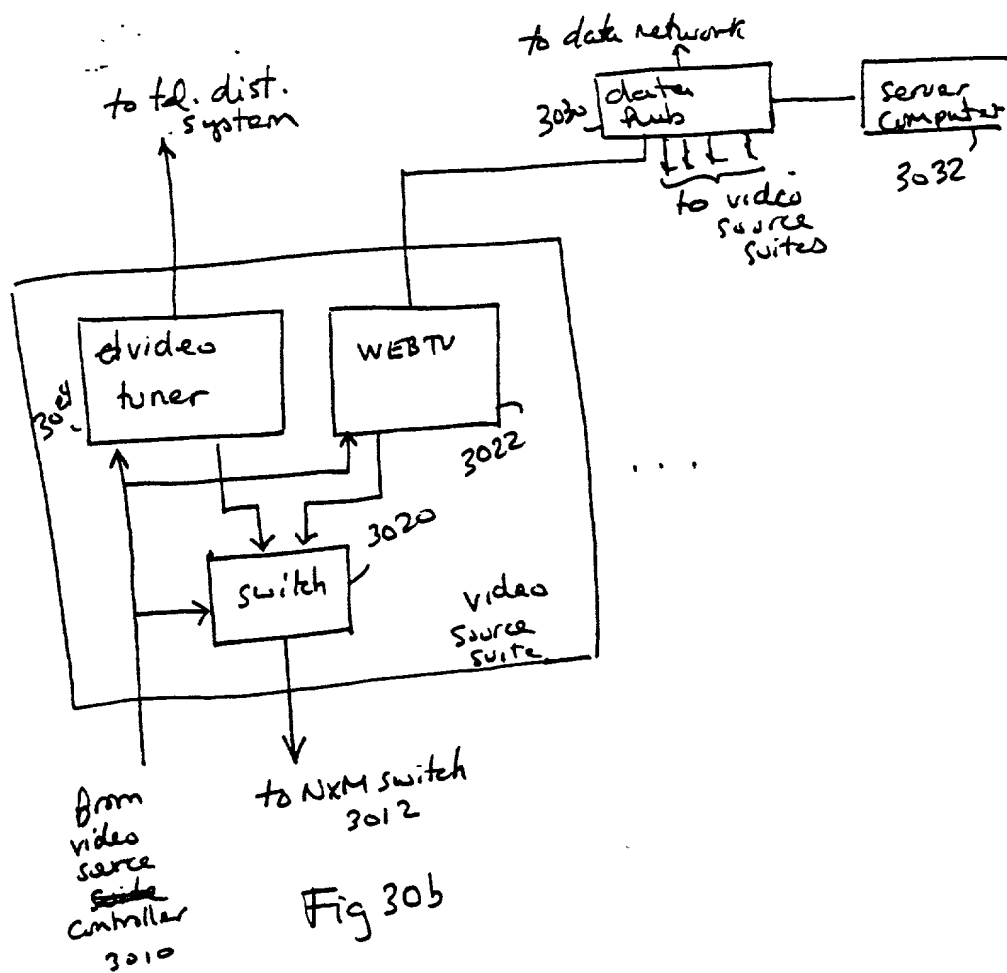 to data network
to tel. dist.
system
3030
data
hub
server
computer
3032
to video
source
suites
video
tuner
WEBTV
3022
. . .
3020
switch
video
source
suite
from
video
source
controller
3010
to NxM switch
3012
Fig 30b